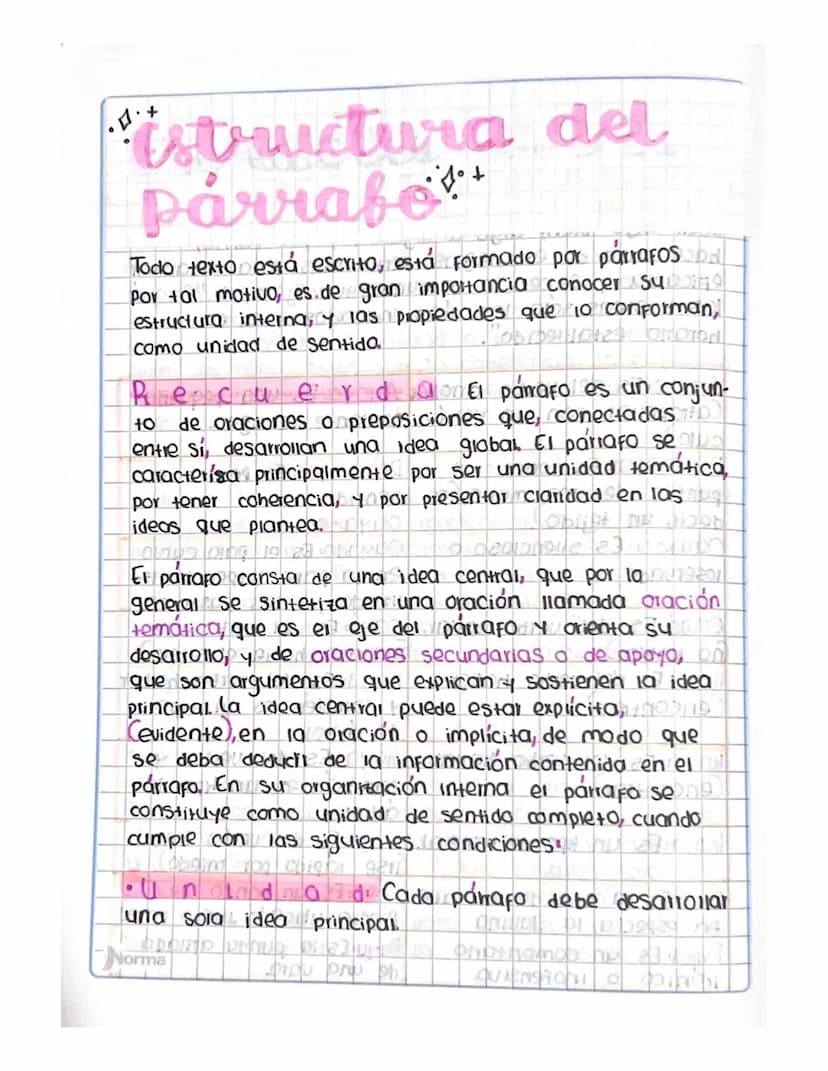 Estructura del
párrafo
Todo texto está escrito, está formado por párrafos
por tal motivo, es de gran importancia conocer su
estructura interna, y las propiedades que lo conforman,
como unidad de sentido.
Recuerda El párrafo es un conjun-
to de oraciones o preposiciones que, conectadas
entre sí, desarrollan una idea global. El párrafo se
caracterisa principalmente por ser una unidad temática,
por tener coherencia, y por presentar claridad en las
ideas que plantea.
El párrafo consta de una idea central, que por lo
general se sintetiza en una oración llamada oración
temática, que es el eje del párrafo y orienta su
desarrollo, y de oraciones secundarias o de apoyo,
que son argumentos que explican y sostienen la idea
principal. La idea central puede estar explícita,
(evidente), en la oración o implícita, de modo que
se deba deducir de la información contenida en el
párrafo. En su organización interna el párrafo se
constituye como unidad de sentido completo, cuando
cumple con las siguientes condiciones:
• Unidad: Cada párrafo debe desarrollar
una sola idea principal.
Norma